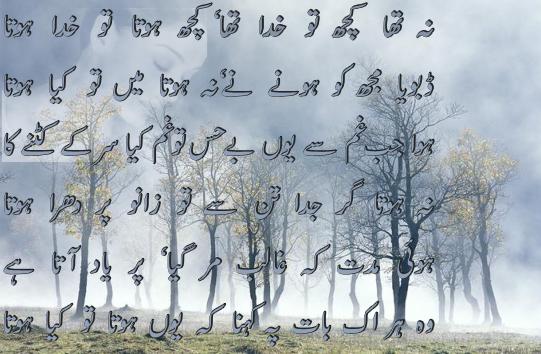 نہ تھا کچھ تو خدا تھا‘ کچھ ہوتا تو خدا ہوتا
ڈبویا مجھ کو ہونے نے‘ نہ ہوتا میں تو کیا ہوتا
ہوا جب غم سے یوں بے حس تو غم کیا سر کے کٹنے کا
نہ ہوتا گر جدا تن سے تو زانو پر دھرا ہوتا
ہوئی مدت کہ غالب مر گیا‘ پر یاد آتا ہے
وہ ہر اک بات پہ کہنا کہ یوں ہوتا تو کیا ہوتا